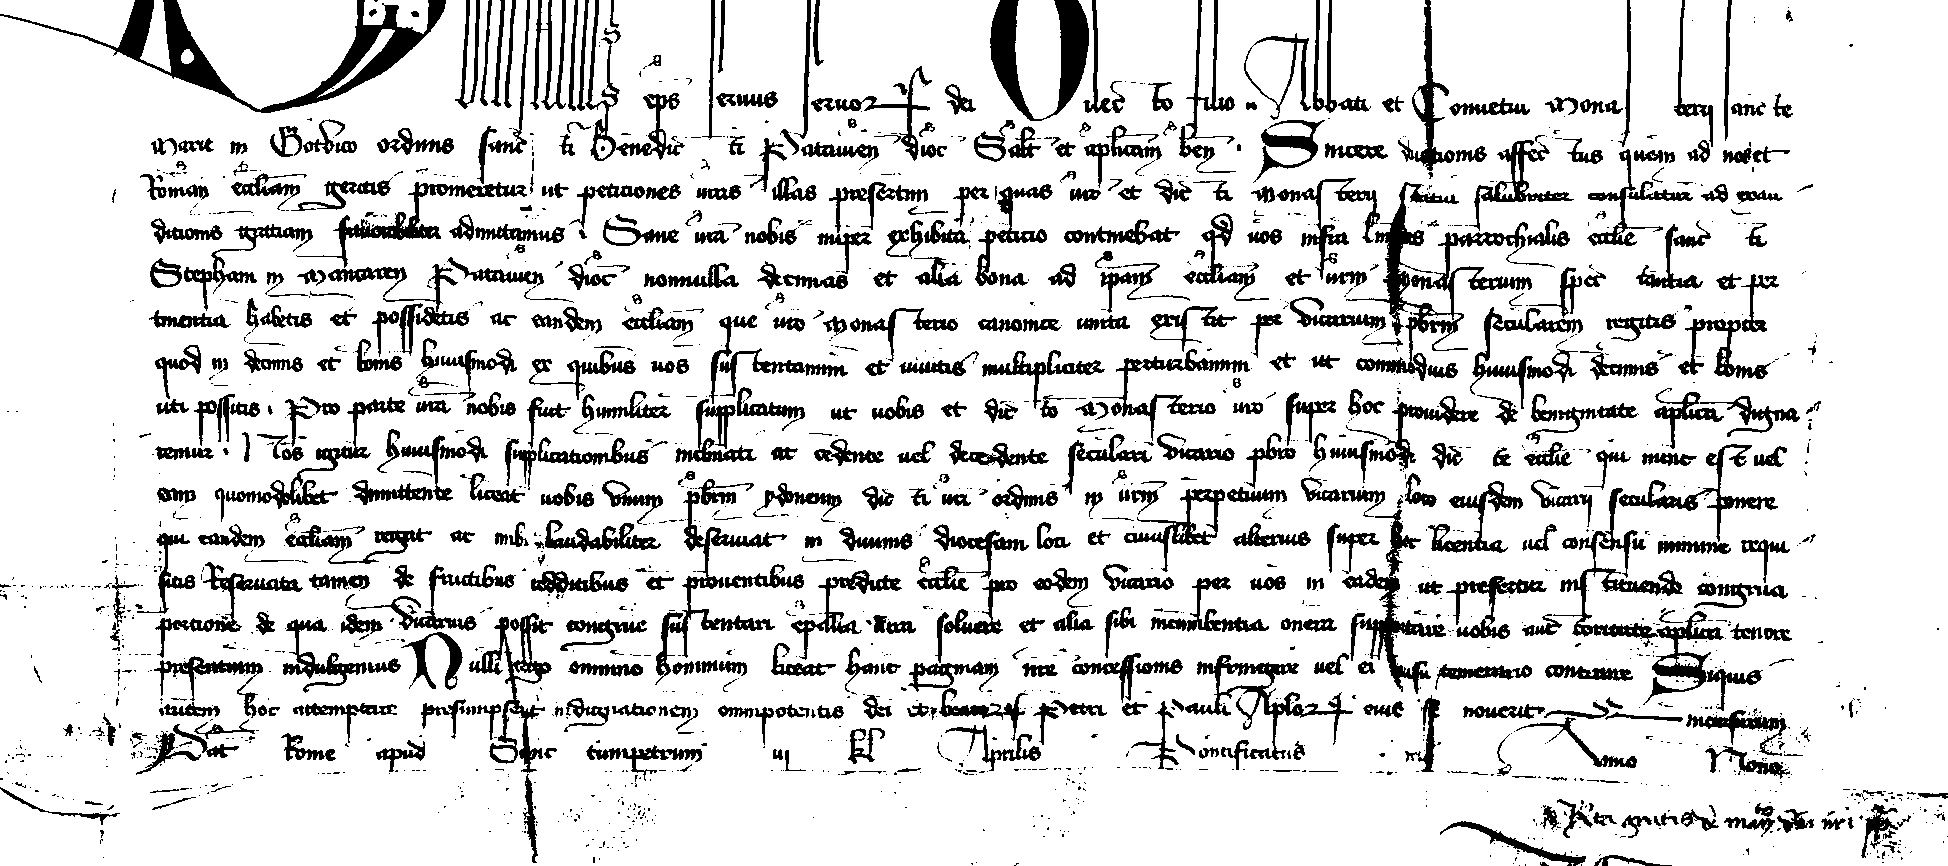 eps seruus seruor dei Dilec to filio Abbati et Conuetui Monas terij sanc te
Marie in Gotbico ordinis sanc ti Benedic ti Patauien dioc Salt et aplicam ben . Sincere deuotionis affec tus quem ad nos et
Roman eccliam geritis promeretur ut petitiones uras illas presertim per quas uro et dic ti Monas terij statui salubriter consulatur ad exau
ditionis gratiam fauorabiliter admittamus . Sane ura nobis nuper exhibita peticio continebat qd uos infra limites parrochialis ecclie sanc ti
Stephani in Mautaren Patauien dioc nonnulla decimas et alia bona ad ipam eccliam et urm monas terium spec tantia et per
tinentia habetis et possidetis ac eandem eccliam que uro Monas terio canonice unita exis tit per vicarium pbrm secularem regitis propter
quod in decimis et bonis huiusmodi ex quibus uos sus tentamini et uiuitis multipliciter perturbamini et ut commodius huiusmodi decimis et bonis
uti possitis . Pro parte ura nobis fuit humiliter supplicatum ut uobis et dic to Monas terio uro super hoc prouidere de benignitate aplica digna
remur . Nos igitur huiusmodi supplicationibus inclinati ac cedente uel decedente seculari vicario pbro huiusmodi dic te ecclie qui nunc es t uel
eam quomodolibet dimittente liceat uobis vnum pbrm ydoneum dic ti uri ordinis in urm perpetuum vicarium loco eiusdem vicarij secularis ponere
qui eandem eccliam regat ac inibi laudabiliter deseruiat in diuinis diocesani loci et cuiuslibet alterius super hoc licentia uel consensu minime requi
sitis Reseruata tamen de fructibus redditibus et prouentibus predicte ecclie pro eodem vicario per uos in eadem ut prefertur ins tituendo congrua
portione de qua idem vicarius possit congrue sus tentari epalia iura soluere et alia sibi incumbentia onera supportare uobis auc toritate aplica tenore
presentium indulgemus Nulli ergo omnino hominum liceat hanc paginam nre concessionis infringere uel ei ausu temerario contraire Siquis
autem hoc attemptare presumpserit indignationem omnipotentis dei et beator Petri et Pauli Aplor eius se nouerit incursurum
Dat Rome apud Sanc tumpetrum vj kl Aprilis Pontificatus nri Anno Nono